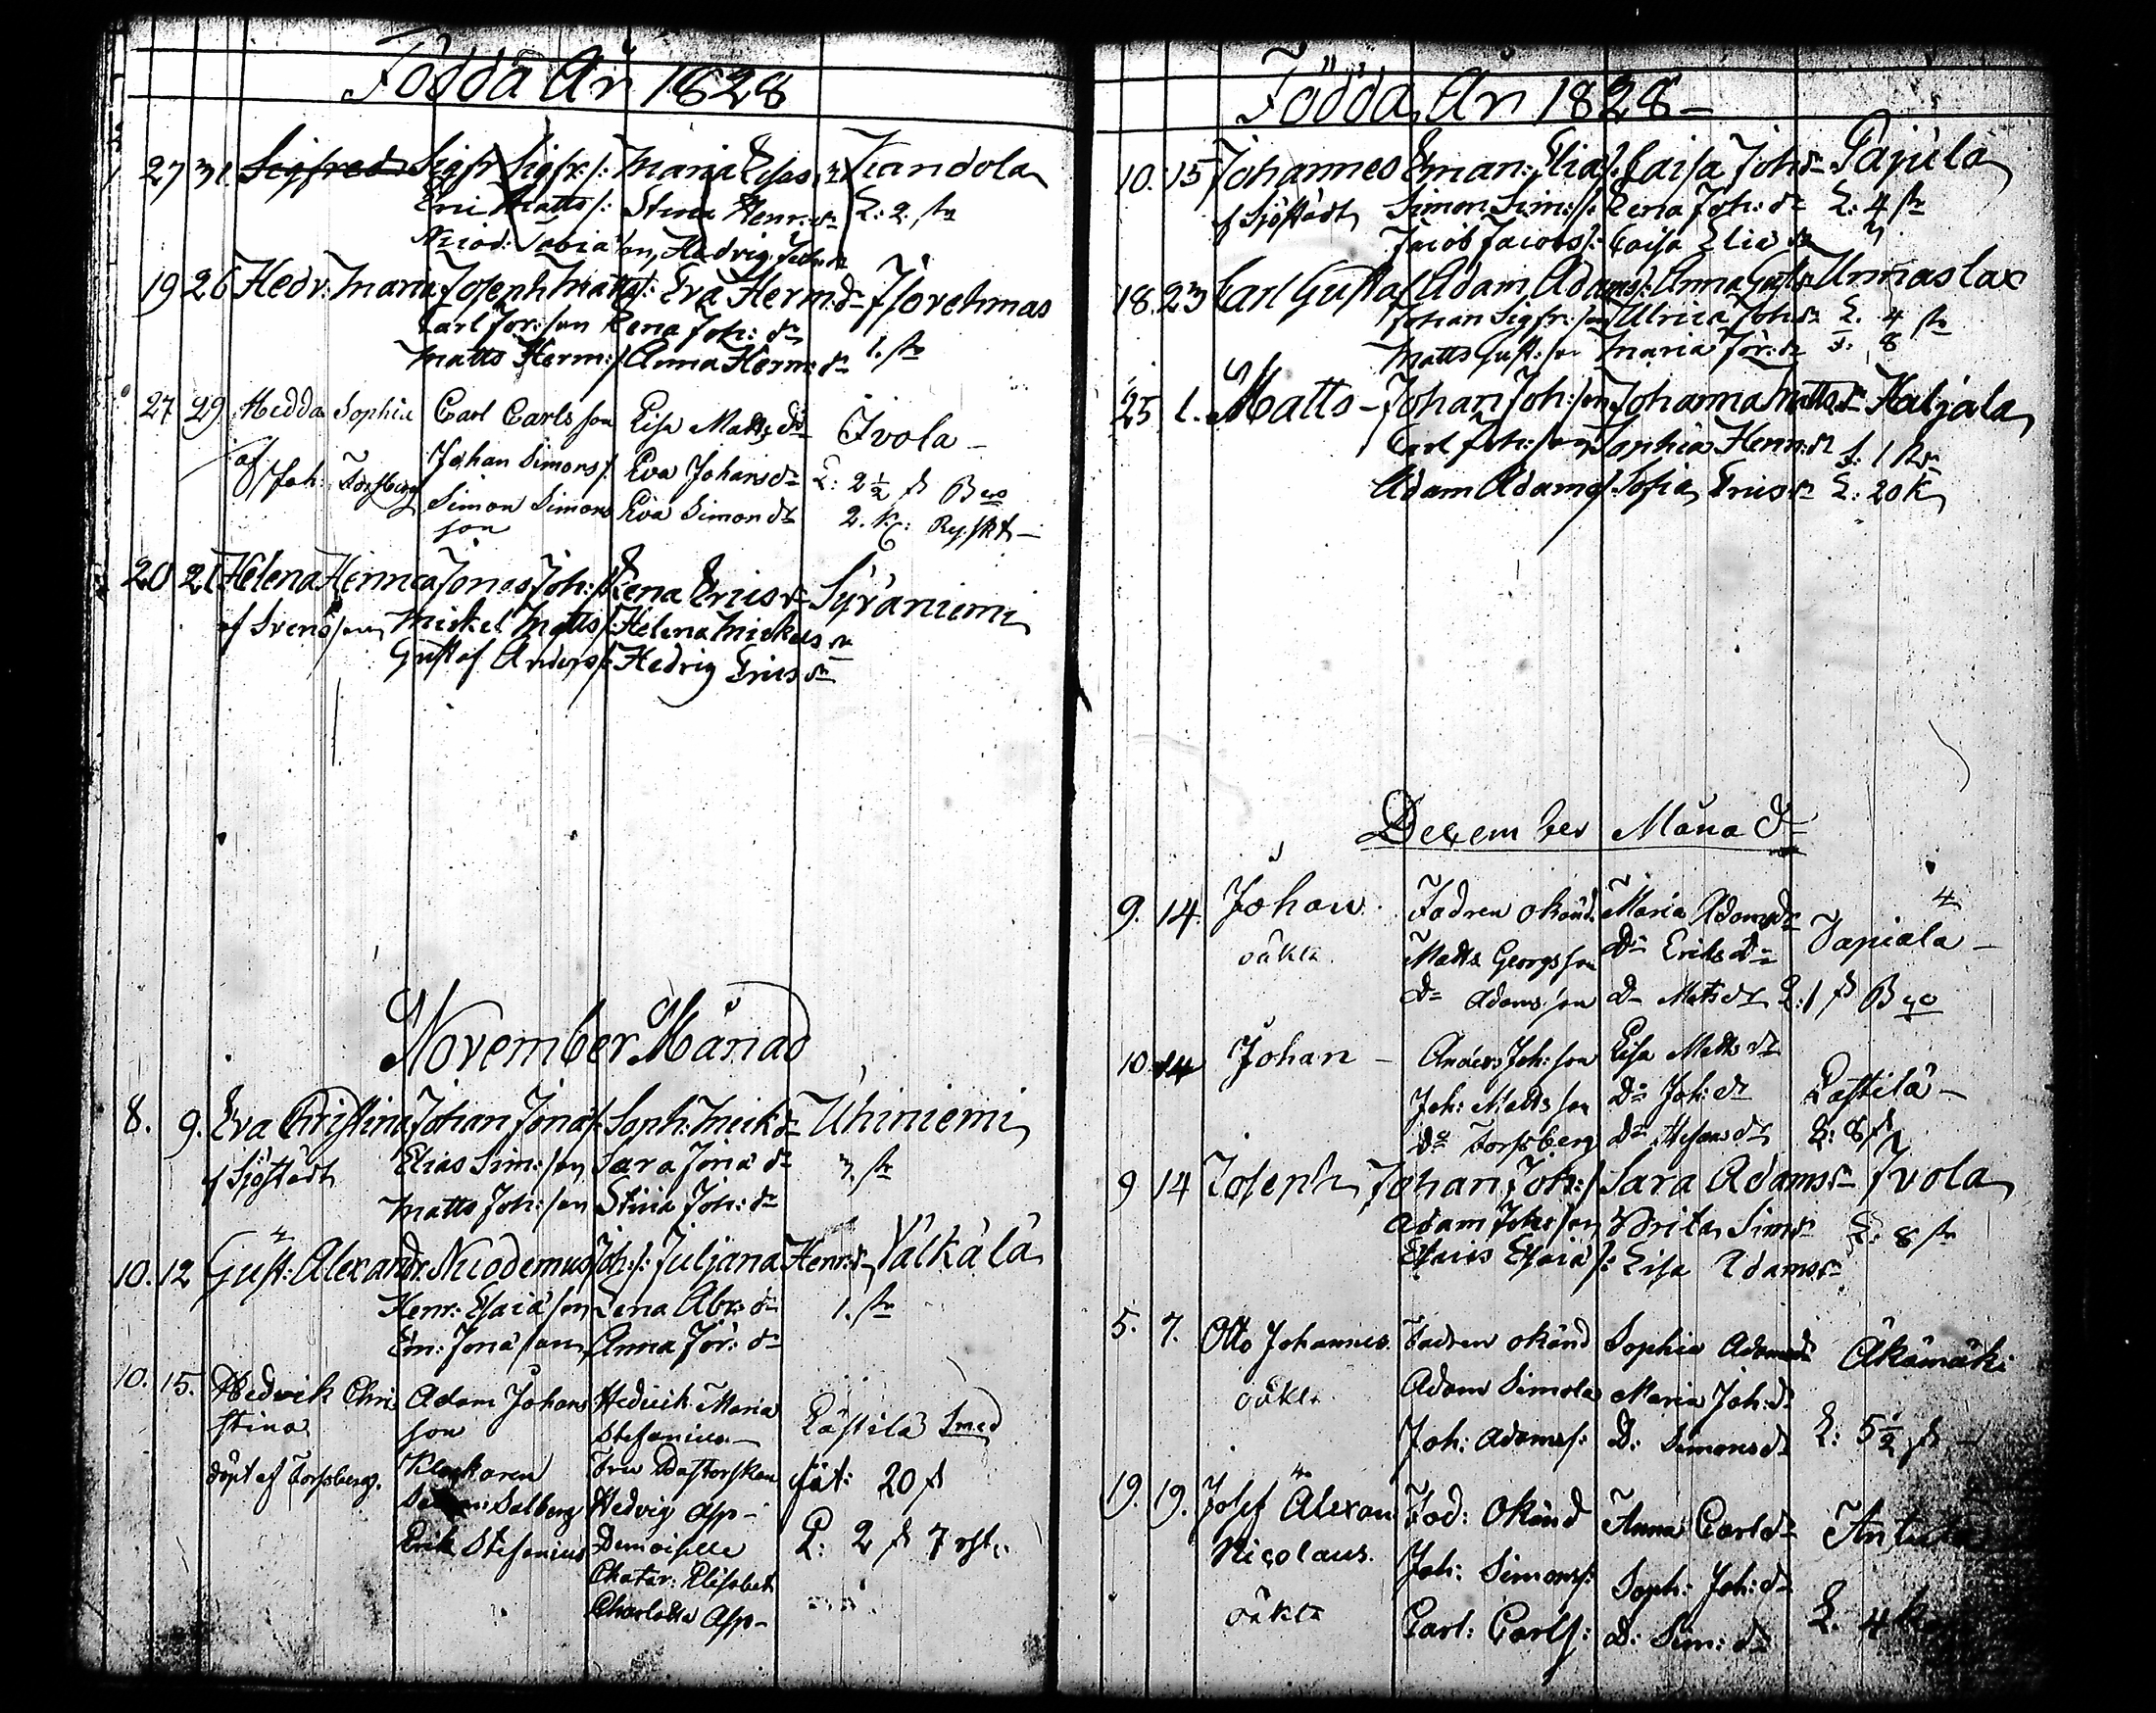 Födda År 1828
27 31. Sigfred Sigfr Sigfr:s: Maria Esas: Kandola
Eric Matts s: Stina Henr: dr L: 2. st
Nicod: Tobia son, Hedvig Joh: dr
19 26 Hedr: Maria Joseph Matts s: Eva Herm: dr
Carl Jör: son Lena Joh: dr
Matts Herm: s Anna Herm: dr 1. st
27 29 Hedda Sophia Carl Carlsson Lisa Matts dr Ivola –
af Johan Simons s: Eva Johans dr L: 2½ st Bco
Joh: Forssberg Simon Simons Eva Simon dr 2. K:
son
20 21 Helena Henrica Jonas Joh: s Lena Erics dr Syräniemi
af Svensson Mickel Matts s: Helena Mickels dr
Gustaf Anders s: Hedvig Erics dr
November Månad
8. 9. Eva Christina Johan Jona s: Soph: Mick dr Uhiniemi
af Sjöstedt Elias Sim: son Sara Jona dr 3. st
Matts Joh: son Stina Joh: dr
10. 12 Gust: Alexandr. Nicodemus Joh: s: Juljana Henr: dr Välkälä
Henr: Esaia son Lena Abr: dr 1. st
Em: Jona son Anna Jör: dr
10. 15. Hedvik Chri Adam Johans Hedvik Maria Pastila Smed
stina son Stefanius –
döpt af Forssberg. Klockaren Fru Pastorskan fat: 20 st
Salberg Hedvig Asp –
Erik Stefanius Demoiselle L: 2 st 7
Chatar: Elisabet
Charlotta Asp –
Födda År 1828 –
10. 15 Johannes Eman: Elia s: Caisa Joh: dr Pajula
af Sjöstedt Simon Sim: s: Lena Joh: dr L: 4 st
Jacob Jacobs s: Caisa Elia dr
18. 23 Carl Gustaf Adam Adams s: Anna Gust: dr Unnaslax
Johan Sigfr: son Ulrica Joh: dr L. 4 st
Matts Gust: son Maria Jör: dr 8
25 1. Matts – Johan Joh: son Johanna Matts dr Haljala
Carl Joh: son Sophia Henr: dr f: 1 R
Adam Adams s: Sofia Erics dr L: 20 K
December Månad
9. 14. Johan Fadren okänd. Maria Adams dr Tapiala –
oäkta. Matts Georgsson Do Eriks dr
Do Adamsson Do Mats dr L: 1 st Bco
10 14 Johan – Anders Joh: son Lisa Matts dr Pastila –
Joh: Mattsson Do Joh: dr
Do Forssberg Do L: 8 st
9 14 Joseph Johan Joh: s Sara Adams dr Ivola
Adam Joh: son Brita Sims dr L: 8 st
Esaias Esaia s: Lisa Adams dr
5. 7. Otto Johannes. Fadren okänd Sophia Adams dr Äkämäki
oäkta Adam Simola Maria Joh: dr
Joh: Adams s: D: Simons dr L: 5½ st –
19. 19. Josef Alexan Fad: Okänd Anna Carl dr
Nicolaus. Joh: Simons s: Soph: Joh: dr
oäkta Carl: Carls s: D: Sim: dr L. 4